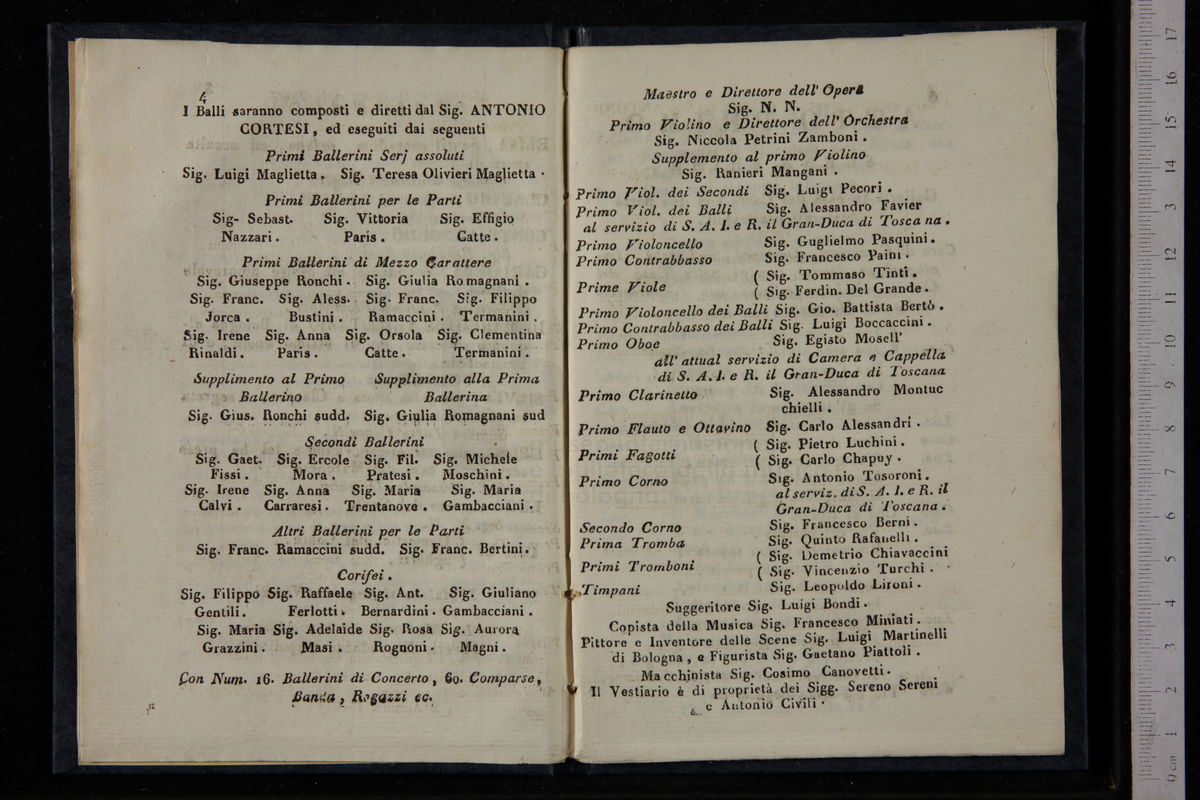 4
I Balli saranno composti e diretti dal Sig. ANTONIO
CORTESI, ed eseguiti dai seguenti
Primi Ballerini Serj assoluti
Sig. Luigi Maglietta. Sig. Teresa Olivieri Maglietta.
Primi Ballerini per le Parti
Sig- Sebast. Sig. Vittoria Sig. Effigio
Nazzari. Paris. Catte.
Primi Ballerini di Mezzo Carattere
Sig. Giuseppe Ronchi. Sig. Giulia Romagnani.
Sig. Franc. Sig. Aless. Sig. Franc. Sig. Filippo
Jorca. Bustini. Ramaccini. Termanini.
Sig. Irene Sig. Anna Sig. Orsola Sig. Clementina
Rinaldi. Paris. Catte. Termanini.
Supplimento al Primo Supplimento alla Prima
Ballerino Ballerina
Sig. Gius. Ronchi sudd. Sig. Giulia Romagnani sud
Secondi Ballerini
Sig. Gaet. Sig. Ercole Sig. Fil. Sig. Michele
Fissi. Mora. Pratesi. Moschini.
Sig. Irene Sig. Anna Sig. Maria Sig. Maria
Calvi. Carraresi. Trentanove. Gambacciani.
Altri Ballerini per le Parti
Sig. Franc. Ramaccini sudd. Sig. Franc. Bertini.
Corifei.
Sig. Filippo Sig. Raffaele Sig. Ant. Sig. Giuliano
Gentili. Ferlotti. Bernardini. Gambacciani.
Sig. Maria Sig. Adelaide Sig. Rosa Sig. Aurora
Grazzini. Masi. Rognoni. Magni.
Con Num. 16. Ballerini di Concerto, 60. Comparse,
Banda, Ragazzi ec.
Maestro e Direttore dell' Opera
Sig. N. N.
Primo Violino e Direttore dell' Orchestra
Sig. Niccola Petrini Zamboni.
Supplemento al primo Violino
Sig. Ranieri Mangani.
Primo Viol. dei Secondi Sig. Luigi Pecori.
Primo Viol. dei Balli Sig. Alessandro Favier
al servizio di S. A. I. e R. il Gran-Duca di Toscana.
Primo Violoncello Sig. Guglielmo Pasquini.
Primo Contrabbasso Sig. Francesco Paini.
Prime Viole ( Sig. Tommaso Tinti.
( Sig. Ferdin. Del Grande.
Primo Violoncello dei Balli Sig. Gio. Battista Bertò.
Primo Contrabbasso dei Balli Sig. Luigi Boccaccini.
Primo Oboe Sig. Egisto Mosell'
all' attual servizio di Camera e Cappella
di S. A. I. e R. il Gran-Duca di Toscana
Primo Clarinetto Sig. Alessandro Montuc
chielli.
Primo Flauto e Ottavino Sig. Carlo Alessandri.
Primi Fagotti ( Sig. Pietro Luchini.
( Sig. Carlo Chapuy.
Primo Corno Sig. Antonio Tosoroni.
al serviz. di S. A. I. e R. il
Gran-Duca di Toscana.
Secondo Corno Sig. Francesco Berni.
Prima Tromba Sig. Quinto Rafanelli.
Primi Tromboni ( Sig. Demetrio Chiavaccini
( Sig. Vincenzio Turchi.
Timpani Sig. Leopoldo Lironi.
Suggeritore Sig. Luigi Bondi.
Copista della Musica Sig. Francesco Miniati.
Pittore e Inventore delle Scene Sig. Luigi Martinelli
di Bologna, e Figurista Sig. Gaetano Piattoli.
Macchinista Sig. Cosimo Canovetti.
Il Vestiario è di proprietà dei Sigg. Sereno Sereni
e Antonio Civili.
0 cm 1 2 3 4 5 6 7 8 9 10 11 12 13 14 15 16 17